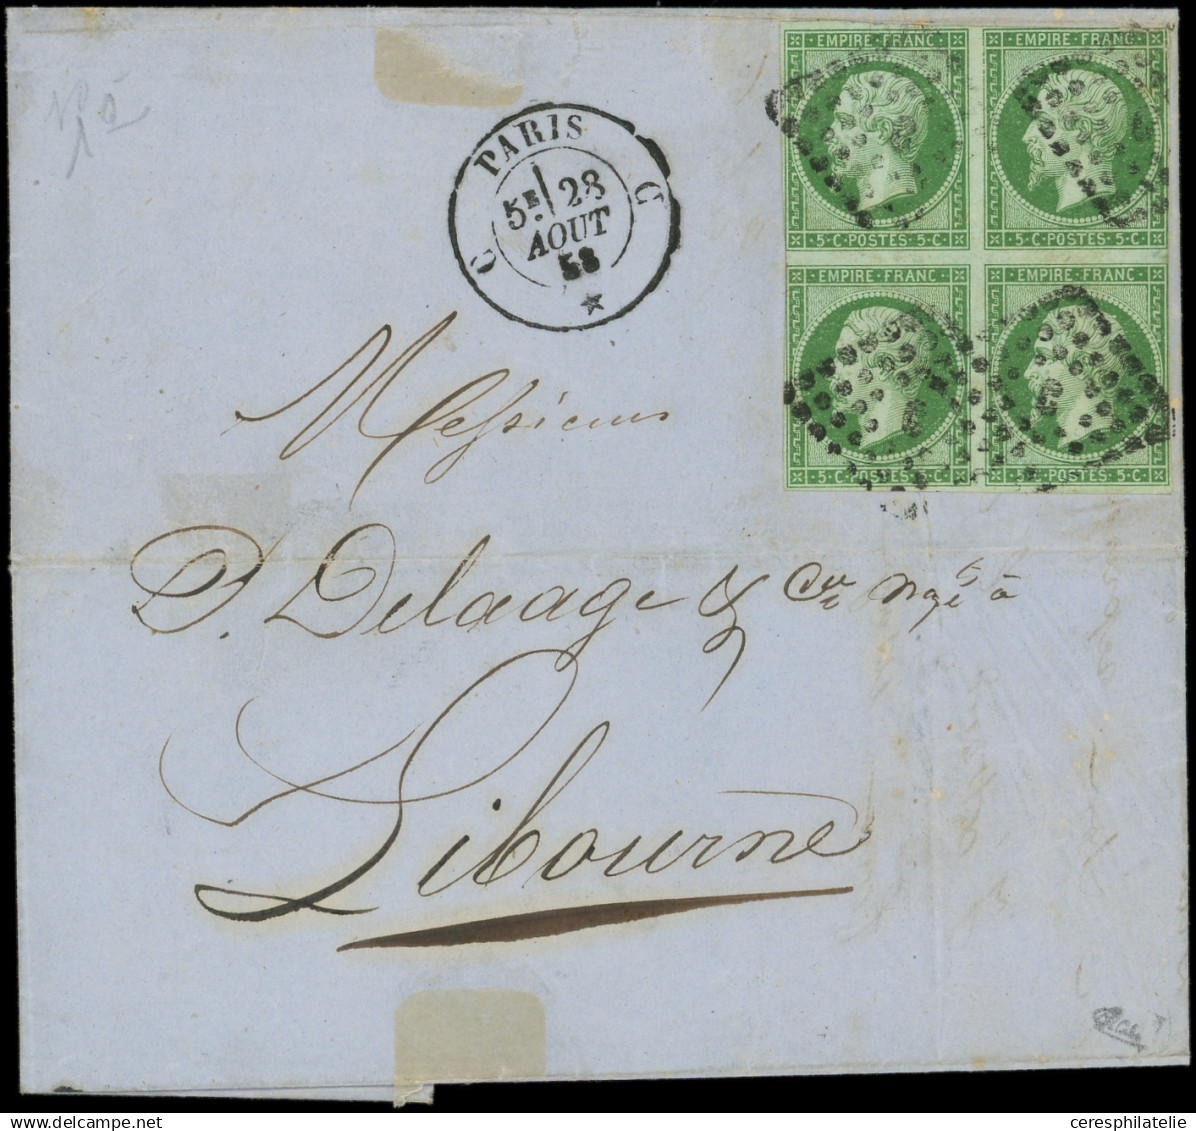 PARIS
C C
5E 28
AOUT
58
EMPIRE · FRANC
EMPIRE · FRANC
5 · C · POSTES · 5 · C
5 · C · POSTES · 5 · C
EMPIRE · FRANC
EMPIRE · FRANC
5 · C · POSTES · 5 · C
5 · C · POSTES · 5 · C
Messieurs
P. Delaage & Cie Ngts à
Libourne
ceresphilatelie